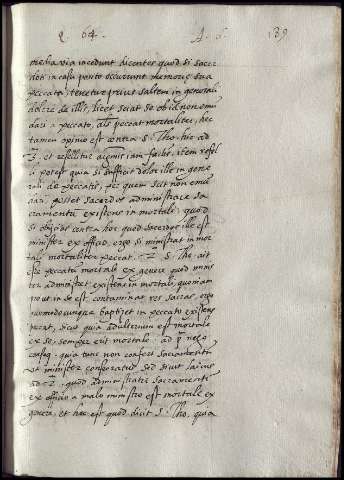 q. 64. A. 6. 139
media via incedunt dicentes quod si sacer
dos in casu posito occurrant memoriae sua
peccata, tenetur prius saltem in generali
dolere de illis, licet sciat se ob id non emu
dari a peccato, als peccat mortaliter, hec
tamen opinio est contra S. Tho. hic ad
3. et refellitur iam facile, item refel
li potest quia si sufficit dolor ille in gene
rali de peccatis, per quem scit non emu
dari, posset sacerdos administrare sa
cramenta existens in mortali, quod
si obijcias contra hoc quod sacerdos ille est
minister ex officio, ergo si ministrat in mor
tali mortaliter peccat. S. Tho. ait
esse peccatum mortale ex genere quod minis
ter administret existens in mortali, quoniam
prout in se est, contaminat res sacras, ergo
quomodocunque baptizet in peccato existens
peccat, sicut quia adulterium est mortale
ex se, semper erit mortale. ad p. nego
conseq. quia tunc non confert sacramentum
ut minister consecratus sed sicut laicus
ad 2. quod administratio sacramenti
ex officio a malo ministro est mortale ex
genere, et hoc est quod dicit S. Tho. quia